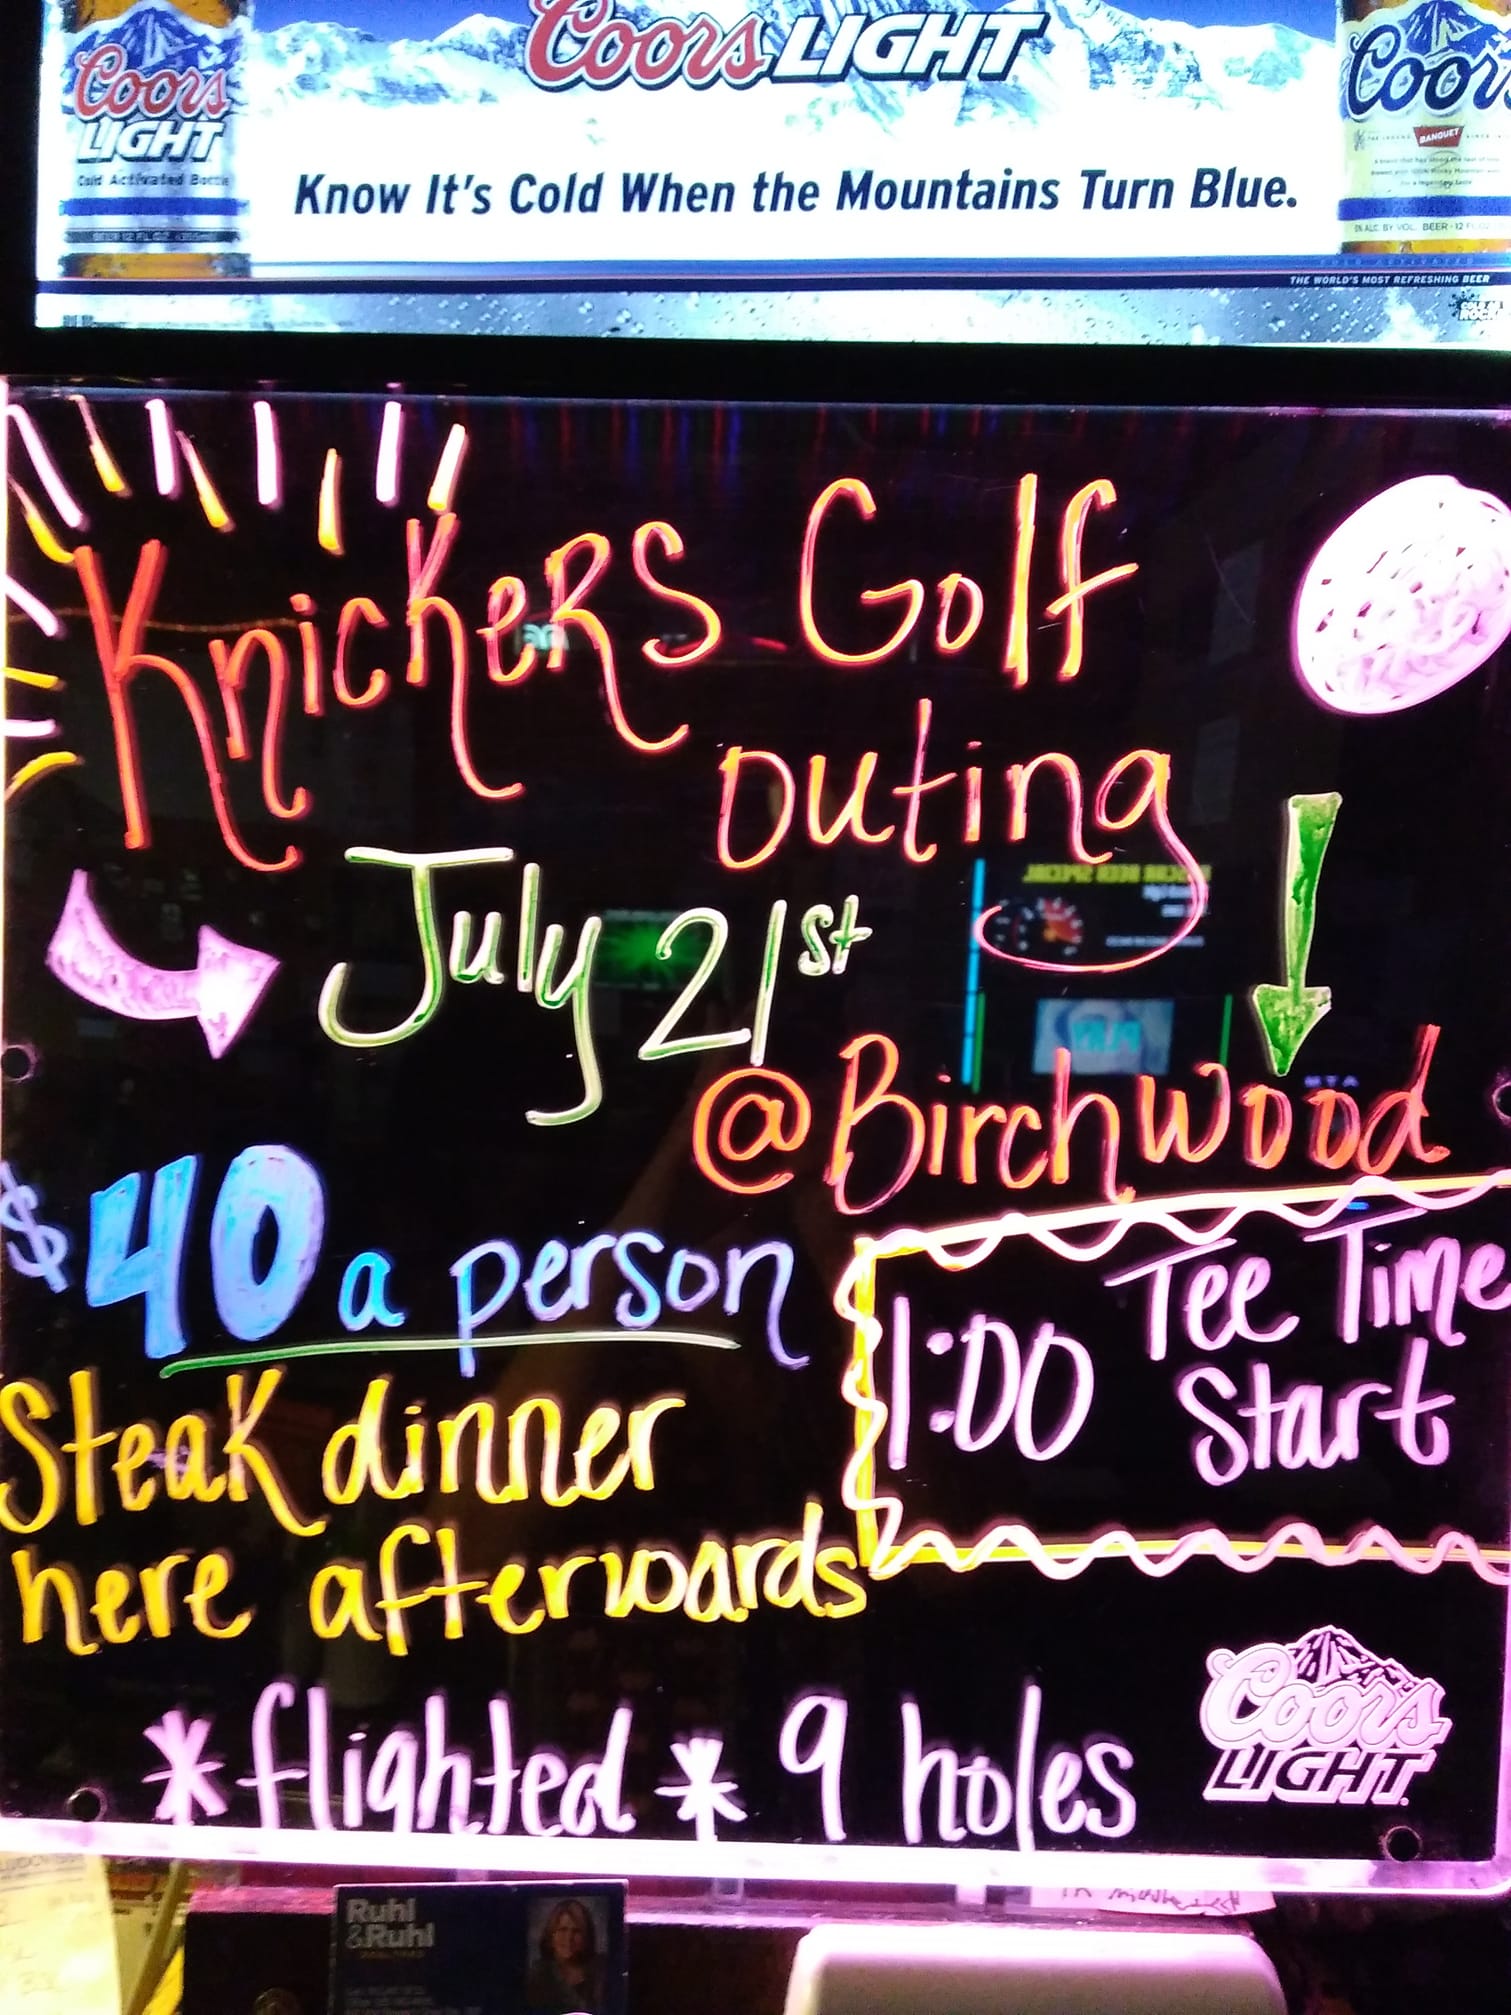 Coors LIGHT
Coors
LIGHT
Cold Activated Bottle
Know It's Cold When the Mountains Turn Blue.
BANQUET
THE WORLD'S MOST REFRESHING BEER
Knickers Golf
outing
July 21st
@Birchwood
$40 a person
1:00 Tee Time
Start
Steak dinner
here afterwards
*flighted* 9 holes
Coors
LIGHT
Ruhl
&Ruhl